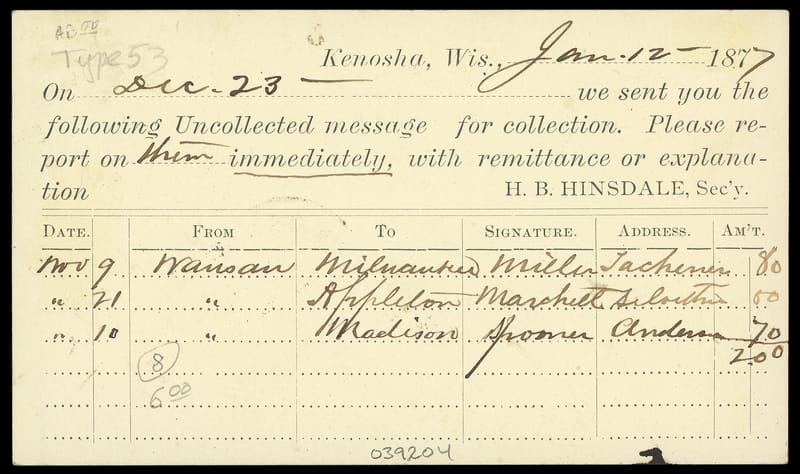 AB 00
Type 53
Kenosha, Wis., Jan. 12 1877
On Dec. 23 we sent you the
following Uncollected message for collection. Please re-
port on them immediately, with remittance or explana-
tion H. B. HINSDALE, Sec'y.
DATE. FROM TO SIGNATURE. ADDRESS. AM'T.
Nov 9 Wausau Milwaukee Miller 80
" 21 " Appleton 50
" 10 " Madison Spooner Anderson 70
2.00
8
6 00
039204